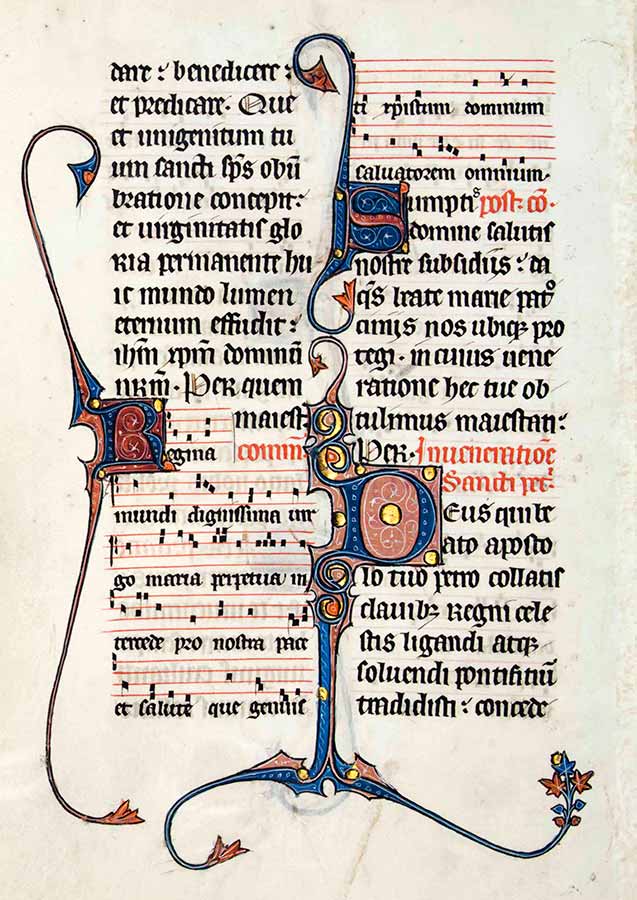 dare : benedicere :
et predicare. Que
et unigenitum tu
um sancti sp̄s obū
bratione concepit :
et uirginitatis glo
ria permanente hu
ic mundo lumen
eternum effudit :
ihm̄ xp̄m dominū
nrm̄. Per quem
maiest
Regina com̄
mundi dignissima uir
go maria perpetua in
tercede pro nostra pace
et salute que genuis
ti xp̄istum dominum
saluatorem omnium.
Sumptis post cō.
domine salutis
nostre subsidiis : da
q̄s beate marie pat
ciniis nos ubiq; pro
tegi. in cuius uene
ratione hec tue ob
tulimus maiestati :
Per. In ueneratiōe
Sancti pet
Deus qui be
ato aposto
lo tuo petro collatis
clauib; regni cele
stis ligandi atq;
soluendi pontifitiū
tradidisti : concede